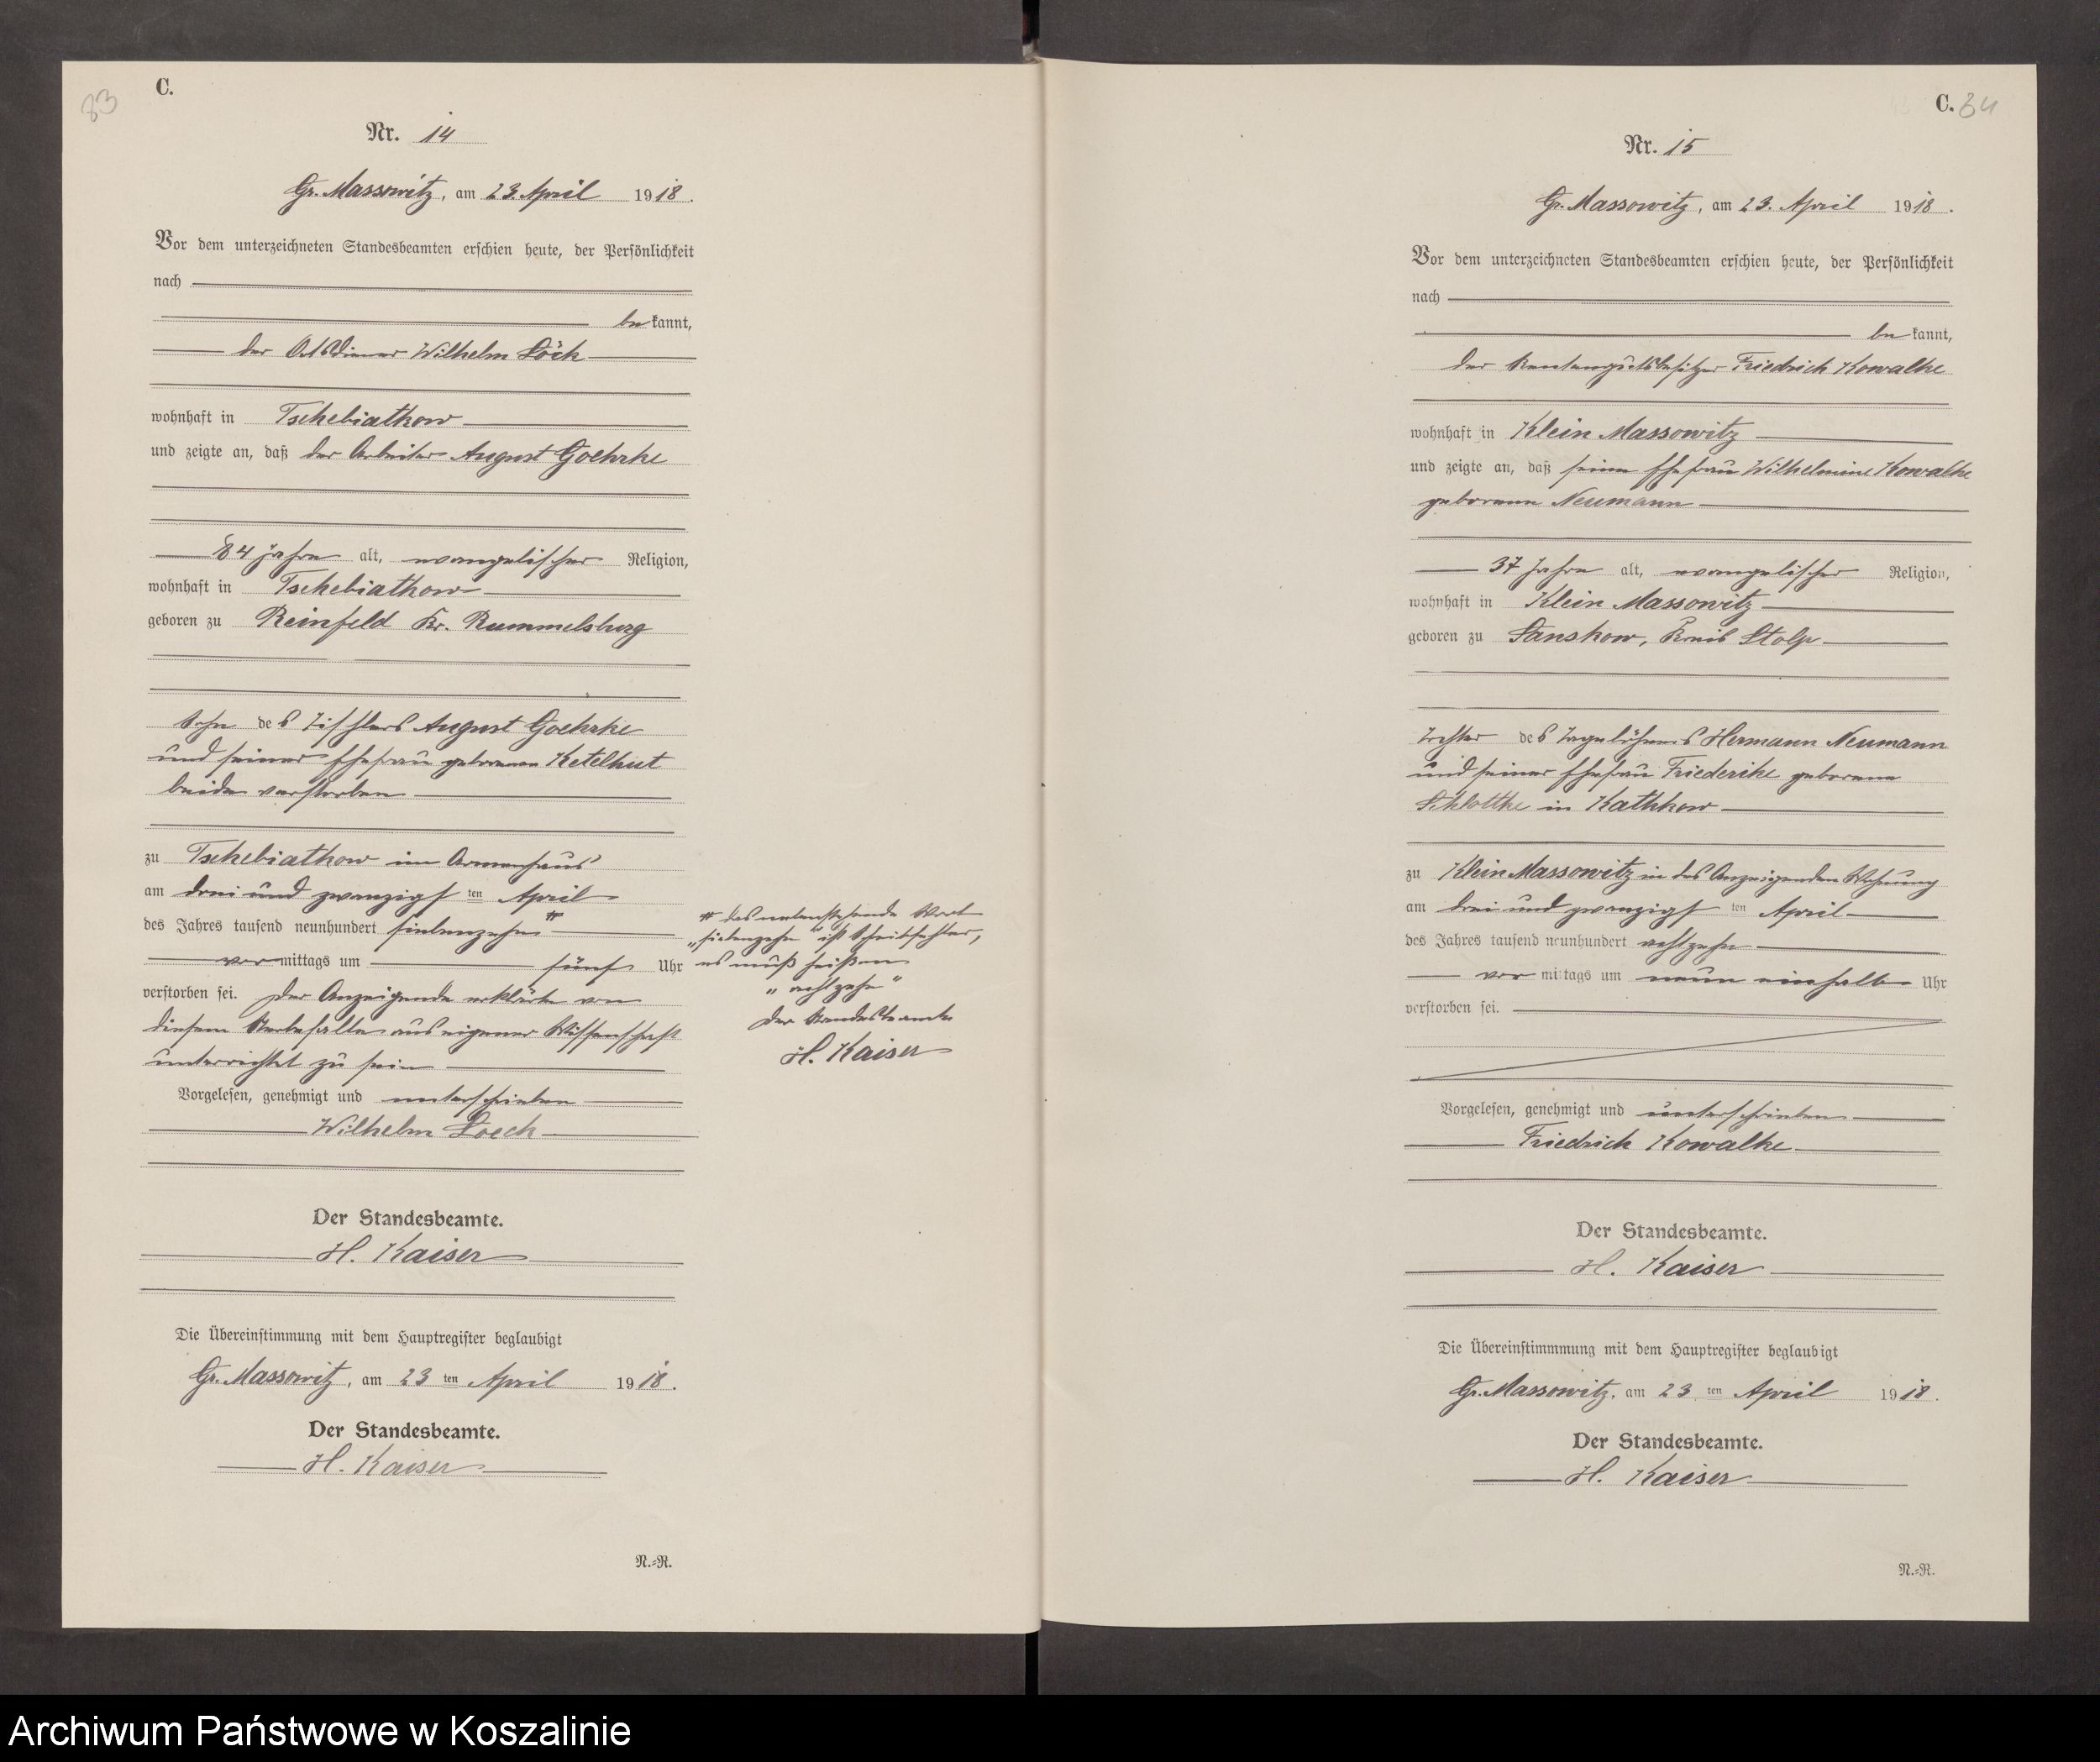 83
C.
Nr. 14
Gr. Massowitz, am 23. April 1918.
Vor dem unterzeichneten Standesbeamten erschien heute, der Persönlichkeit
nach
bekannt,
der Ortsdiener Wilhelm Löck
wohnhaft in Tschebiatkow
und zeigte an, daß der Arbeiter August Goehrke
84 Jahre alt, evangelischer Religion,
wohnhaft in Tschebiatkow
geboren zu Reinfeld Kr. Rummelsburg
Sohn des Tischlers August Goehrke
und seiner Ehefrau geborenen Ketelhut
beide verstorben
zu Tschebiatkow im Armenhaus
am drei und zwanzigsten April
des Jahres tausend neunhundert siebenzehn #
vormittags um fünf Uhr
verstorben sei. Der Anzeigende erklärte von
diesem Sterbefalle aus eigener Wissenschaft
unterrichtet zu sein
Vorgelesen, genehmigt und unterschrieben
Wilhelm Loeck
Der Standesbeamte.
H. Kaiser
Die Übereinstimmung mit dem Hauptregister beglaubigt
Gr. Massowitz, am 23ten April 1918.
Der Standesbeamte.
H. Kaiser
N.=R.
# das nebenstehende Wort
„siebenzehn" ist Schreibfehler,
es muß heißen
„achtzehn"
Der Standesbeamte
H. Kaiser
C. 34
Nr. 15
Gr. Massowitz, am 23. April 1918.
Vor dem unterzeichneten Standesbeamten erschien heute, der Persönlichkeit
nach
bekannt,
der Rentengutsbesitzer Friedrich Kowalke
wohnhaft in Klein Massowitz
und zeigte an, daß seine Ehefrau Wilhelmine Kowalke
geborene Neumann
37 Jahre alt, evangelischer Religion,
wohnhaft in Klein Massowitz
geboren zu Kreis Stolp
Tochter des Tagelöhners Hermann Neumann
und seiner Ehefrau Friederike geborene
Schlottke in Kathkow
zu Klein Massowitz in des Anzeigenden Wohnung
am drei und zwanzigsten April
des Jahres tausend neunhundert achtzehn
vormittags um neun einhalb Uhr
verstorben sei.
Vorgelesen, genehmigt und unterschrieben
Friedrich Kowalke
Der Standesbeamte.
H. Kaiser
Die Übereinstimmmung mit dem Hauptregister beglaubigt
Gr. Massowitz, am 23ten April 1918.
Der Standesbeamte.
H. Kaiser
N.=R.
Archiwum Państwowe w Koszalinie